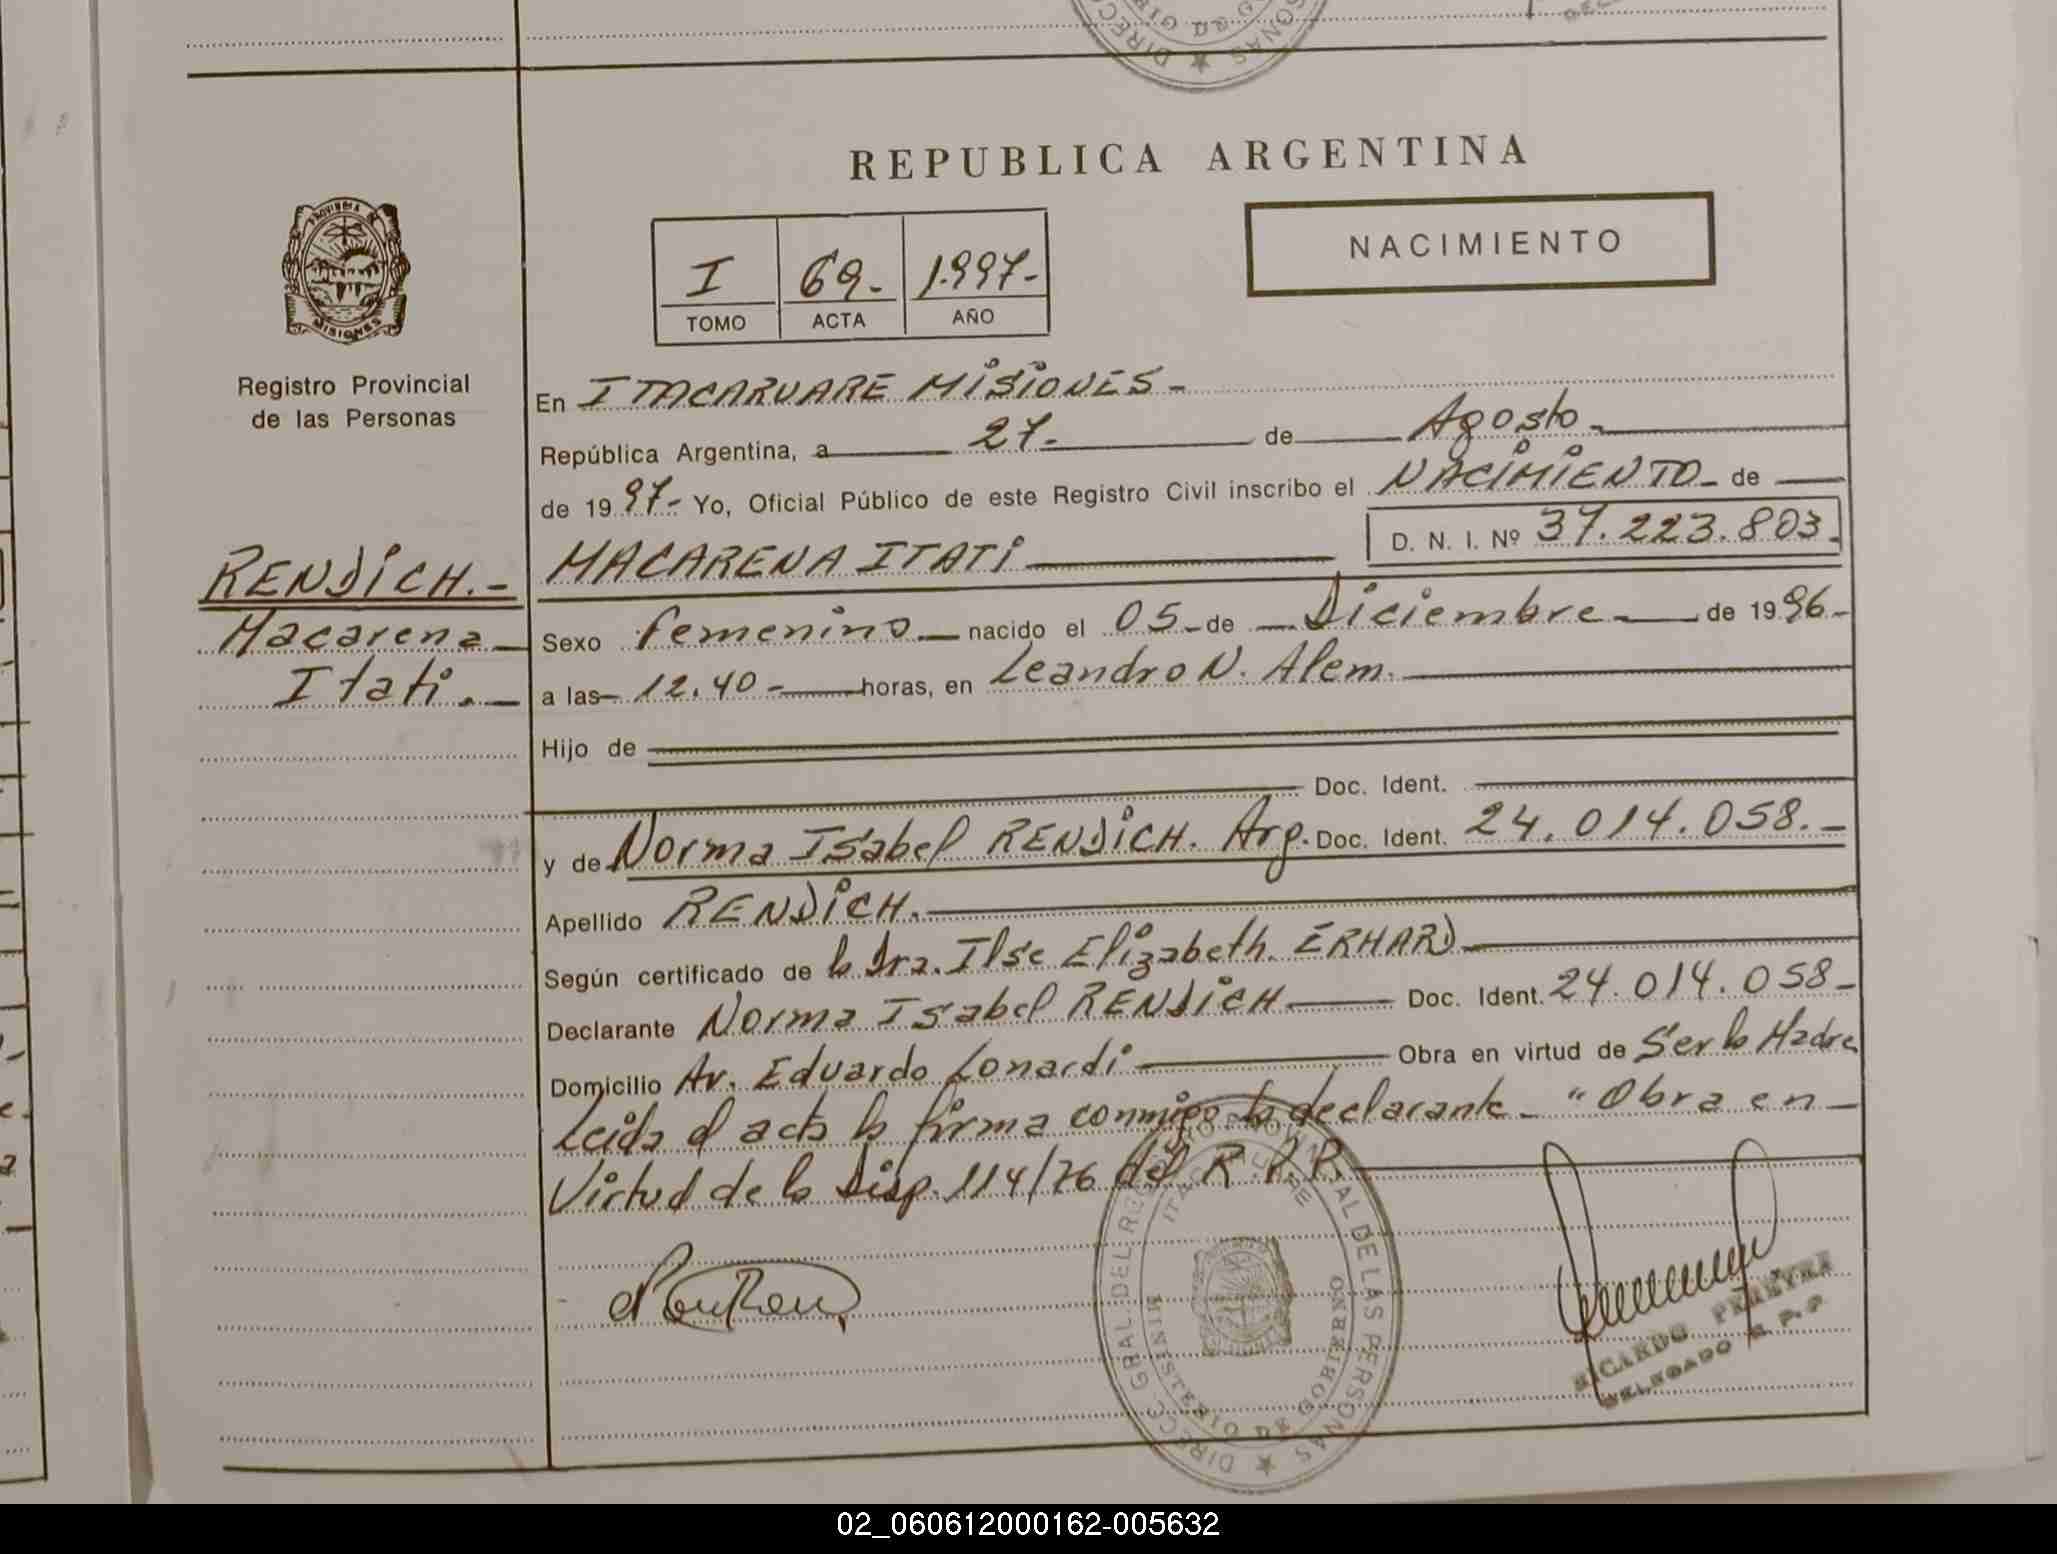 REPUBLICA ARGENTINA
NACIMIENTO
I 69.- 1.997.-
TOMO ACTA AÑO
PROVINCIA DE
MISIONES
Registro Provincial
de las Personas
RENDiCH.-
Macarena
Itati.
En ITACARUARE MiSiONES-
República Argentina, a 27.- de Agosto.
de 1997.- Yo, Oficial Público de este Registro Civil inscribo el NACiMiENTO de
MACARENA ITATi D. N. I. Nº 37.223.803.
Sexo femenino nacido el 05 de Diciembre de 1996.-
a las 12.40- horas, en Leandro N. Alem.
Hijo de
Doc. Ident.
y de Norma Isabel RENDiCH. Arg. Doc. Ident. 24.014.058.-
Apellido RENDiCH.
Según certificado de la Dra. Ilse Elizabeth ERHARD
Declarante Norma Isabel RENDiCH Doc. Ident. 24.014.058-
Domicilio Av. Eduardo Lonardi Obra en virtud de Ser la Madre
Leida el acta la firma conmigo la declarante. "Obra en
Virtud de la Disp. 114/76 del R.P.P.
DIRECC. GRAL DEL REGISTRO PROVINCIAL DE LAS PERSONAS
ITACARUARE
MINISTERIO DE GOBIERNO
RICARDO PEREYRA
DELEGADO R. P. P.
02_060612000162-005632